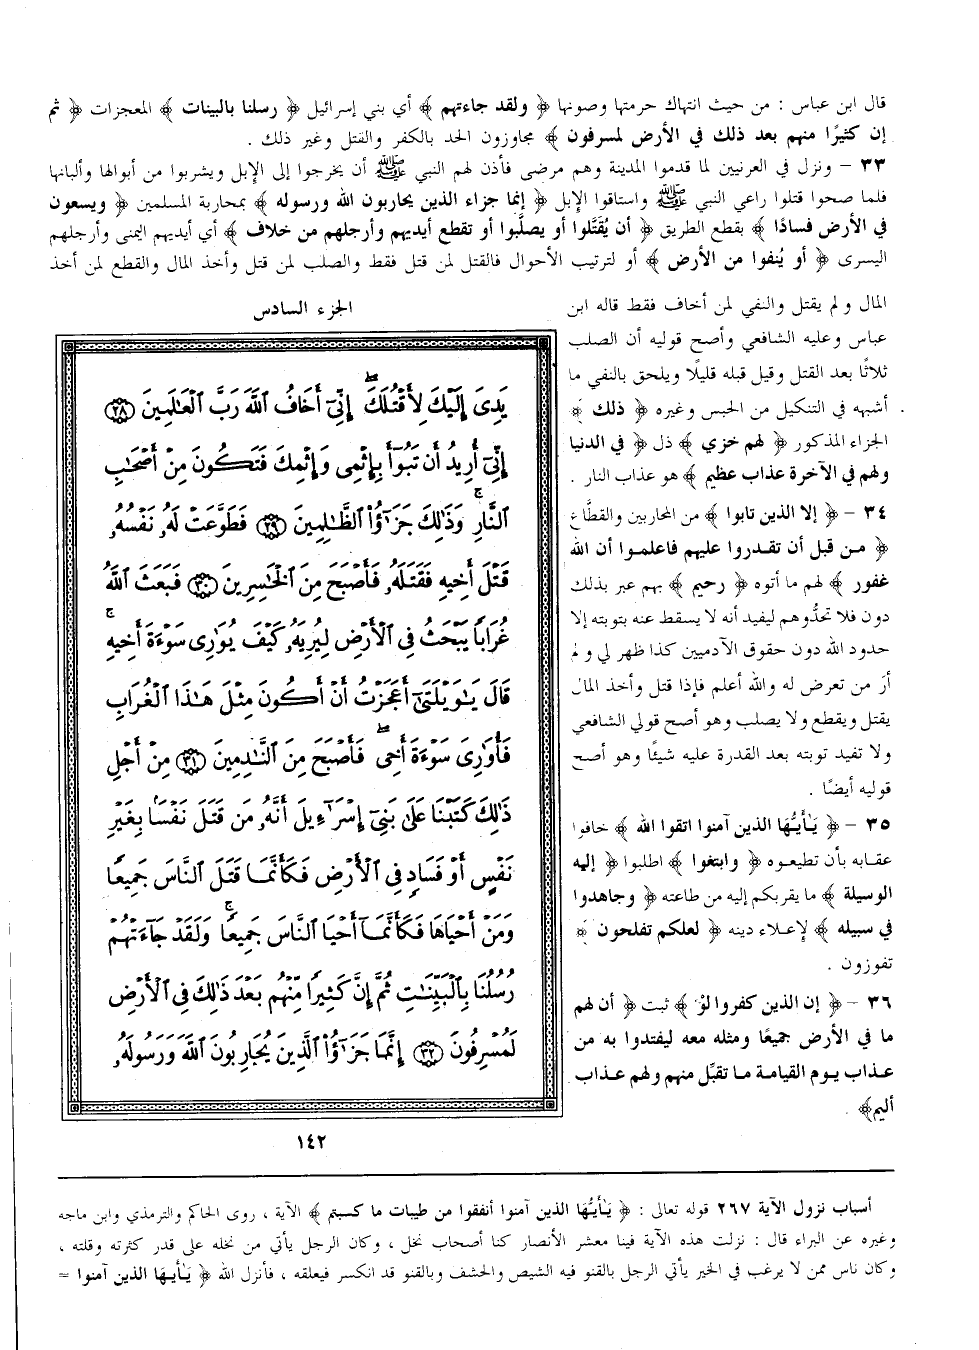 قال ابن عباس : من حيث انتهاك حرمتها وصونها ﴿ ولقد جاءتهم ﴾ أي بني إسرائيل ﴿ رسلنا بالبينات ﴾ المعجزات ﴿ ثم
إن كثيرًا منهم بعد ذلك في الأرض لمسرفون ﴾ مجاوزون الحد بالكفر والقتل وغير ذلك .
٣٣ – ونزل في العرنيين لما قدموا المدينة وهم مرضى فأذن لهم النبي ﷺ أن يخرجوا إلى الإبل ويشربوا من أبوالها وألبانها
فلما صحوا قتلوا راعي النبي ﷺ واستاقوا الإبل ﴿ إنما جزاء الذين يحاربون الله ورسوله ﴾ بمحاربة المسلمين ﴿ ويسعون
في الأرض فسادًا ﴾ بقطع الطريق ﴿ أن يُقَتَّلوا أو يصلَّبوا أو تقطع أيديهم وأرجلهم من خلاف ﴾ أي أيديهم اليمنى وأرجلهم
اليسرى ﴿ أو يُنفوا من الأرض ﴾ أو لترتيب الأحوال فالقتل لمن قتل فقط والصلب لمن قتل وأخذ المال والقطع لمن أخذ
المال ولم يقتل والنفي لمن أخاف فقط قاله ابن
عباس وعليه الشافعي وأصح قوليه أن الصلب
ثلاثًا بعد القتل وقيل قبله قليلًا ويلحق بالنفي ما
أشبهه في التنكيل من الحبس وغيره ﴿ ذلك ﴾
الجزاء المذكور ﴿ لهم خزي ﴾ ذل ﴿ في الدنيا
ولهم في الآخرة عذاب عظيم ﴾ هو عذاب النار .
٣٤ – ﴿ إلا الذين تابوا ﴾ من المحاربين والقطَّاع
﴿ من قبل أن تقدروا عليهم فاعلموا أن الله
غفور ﴾ لهم ما أتوه ﴿ رحيم ﴾ بهم عبر بذلك
دون فلا تحدُّوهم ليفيد أنه لا يسقط عنه بتوبته إلا
حدود الله دون حقوق الآدميين كذا ظهر لي ولم
أرَ من تعرض له والله أعلم فإذا قتل وأخذ المال
يقتل ويقطع ولا يصلب وهو أصح قولي الشافعي
ولا تفيد توبته بعد القدرة عليه شيئًا وهو أصح
قوليه أيضًا .
٣٥ – ﴿ يَأيُّهَا الذين آمنوا اتقوا الله ﴾ خافوا
عقابه بأن تطيعوه ﴿ وابتغوا ﴾ اطلبوا ﴿ إليه
الوسيلة ﴾ ما يقربكم إليه من طاعته ﴿ وجاهدوا
في سبيله ﴾ لإعلاء دينه ﴿ لعلكم تفلحون ﴾
تفوزون .
٣٦ – ﴿ إن الذين كفروا لوْ ﴾ ثبت ﴿ أن لهم
ما في الأرض جميعًا ومثله معه ليفتدوا به من
عذاب يوم القيامة ما تقبِّل منهم ولهم عذاب
أليم﴾ .
الجزء السادس
يَدِىَ إِلَيْكَ لِأَقْتُلَكَ ۖ إِنِّىٓ أَخَافُ ٱللَّهَ رَبَّ ٱلْعَٰلَمِينَ ﴿٢٨﴾
إِنِّىٓ أُرِيدُ أَن تَبُوٓأَ بِإِثْمِى وَإِثْمِكَ فَتَكُونَ مِنْ أَصْحَٰبِ
ٱلنَّارِ ۚ وَذَٰلِكَ جَزَٰٓؤُا۟ ٱلظَّٰلِمِينَ ﴿٢٩﴾ فَطَوَّعَتْ لَهُۥ نَفْسُهُۥ
قَتْلَ أَخِيهِ فَقَتَلَهُۥ فَأَصْبَحَ مِنَ ٱلْخَٰسِرِينَ ﴿٣٠﴾ فَبَعَثَ ٱللَّهُ
غُرَابًا يَبْحَثُ فِى ٱلْأَرْضِ لِيُرِيَهُۥ كَيْفَ يُوَٰرِى سَوْءَةَ أَخِيهِ ۚ
قَالَ يَٰوَيْلَتَىٰٓ أَعَجَزْتُ أَنْ أَكُونَ مِثْلَ هَٰذَا ٱلْغُرَابِ
فَأُوَٰرِىَ سَوْءَةَ أَخِى ۖ فَأَصْبَحَ مِنَ ٱلنَّٰدِمِينَ ﴿٣١﴾ مِنْ أَجْلِ
ذَٰلِكَ كَتَبْنَا عَلَىٰ بَنِىٓ إِسْرَٰٓءِيلَ أَنَّهُۥ مَن قَتَلَ نَفْسًۢا بِغَيْرِ
نَفْسٍ أَوْ فَسَادٍ فِى ٱلْأَرْضِ فَكَأَنَّمَا قَتَلَ ٱلنَّاسَ جَمِيعًا
وَمَنْ أَحْيَاهَا فَكَأَنَّمَآ أَحْيَا ٱلنَّاسَ جَمِيعًا ۚ وَلَقَدْ جَآءَتْهُمْ
رُسُلُنَا بِٱلْبَيِّنَٰتِ ثُمَّ إِنَّ كَثِيرًا مِّنْهُم بَعْدَ ذَٰلِكَ فِى ٱلْأَرْضِ
لَمُسْرِفُونَ ﴿٣٢﴾ إِنَّمَا جَزَٰٓؤُا۟ ٱلَّذِينَ يُحَارِبُونَ ٱللَّهَ وَرَسُولَهُۥ
١٤٢
أسباب نزول الآية ٢٦٧ قوله تعالى : ﴿ يَأيُّهَا الذين آمنوا أنفقوا من طيبات ما كسبتم ﴾ الآية ، روى الحاكم والترمذي وابن ماجه
وغيره عن البراء قال : نزلت هذه الآية فينا معشر الأنصار كنا أصحاب نخل ، وكان الرجل يأتي من نخله على قدر كثرته وقلته ،
وكان ناس ممن لا يرغب في الخير يأتي الرجل بالقنو فيه الشيص والحشف وبالقنو قد انكسر فيعلقه ، فأنزل الله ﴿ يَأيهَا الذين آمنوا =